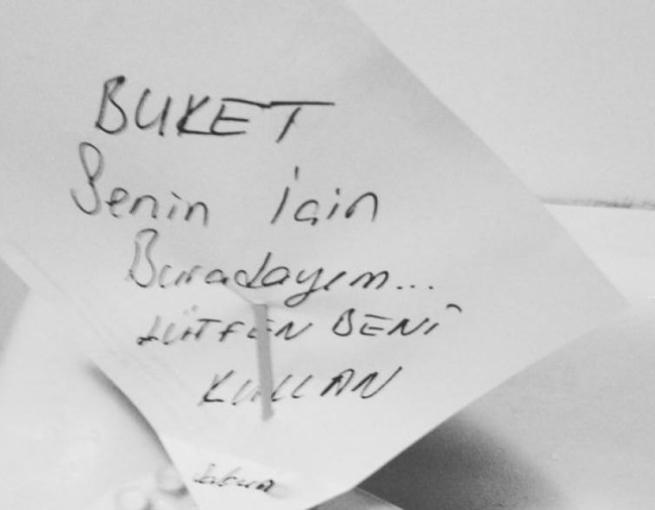 BUKET
Senin İçin
Buradayım...
LÜTFEN BENİ
KULLAN